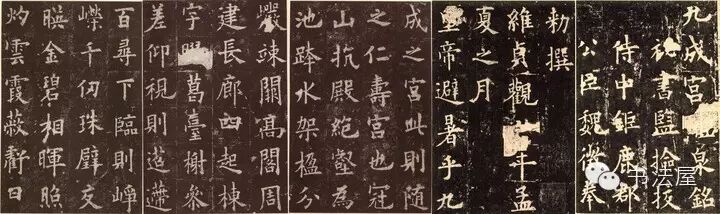 九成宮泉銘
祕書監撿挍
侍中鉅鹿郡
公臣魏徵奉
勅撰
維貞觀年孟
夏之月
皇帝避暑乎九
成之宮此則隨
之仁壽宮也冠
山抗殿絕壑為
池跨水架楹分
巖竦闕高閣周
建長廊四起棟
宇膠葛臺榭參
差仰視則迢遰
百尋下臨則崢
嶸千仞珠璧交
暎金碧相暉照
灼雲霞蔽虧日
书法屋